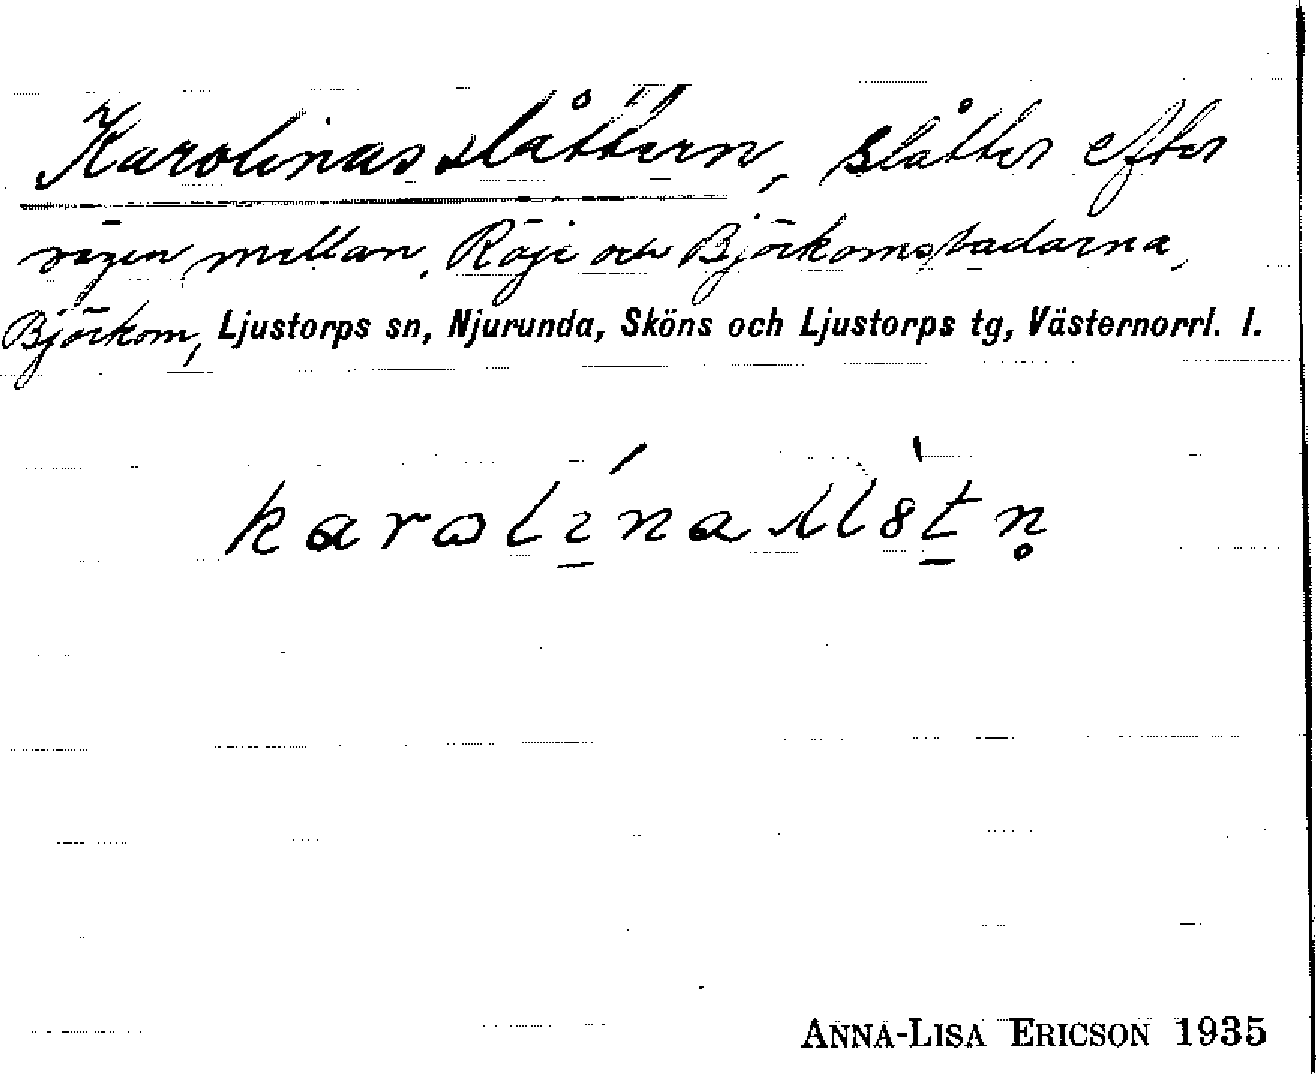 Karolinasslåttern, slåtter efter
vägen mellan Röje och Björkomsbodarna,
Björkom, Ljustorps sn, Njurunda, Sköns och Ljustorps tg, Västernorrl. l.
ANNA-LISA ERICSON 1935